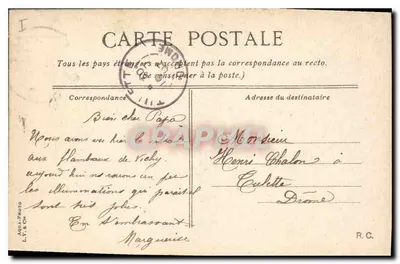 CARTE POSTALE
Tous les pays étrangers n'acceptent pas la correspondance au recto.
(Se renseigner à la poste.)
Correspondance
Adresse du destinataire
Bien cher Papa
Nous avons eu hier la
aux flambeaux de Vichy
aujourd hui nous aurons un peu
les illuminations qui parait il
sont très jolies.
En t'embrassant
Marguerite
Monsieur
Henri Chalon à
Tulette
Drôme
AQUA-PHOTO
L. V. & Cie
R. C.
TULETTE
DROME